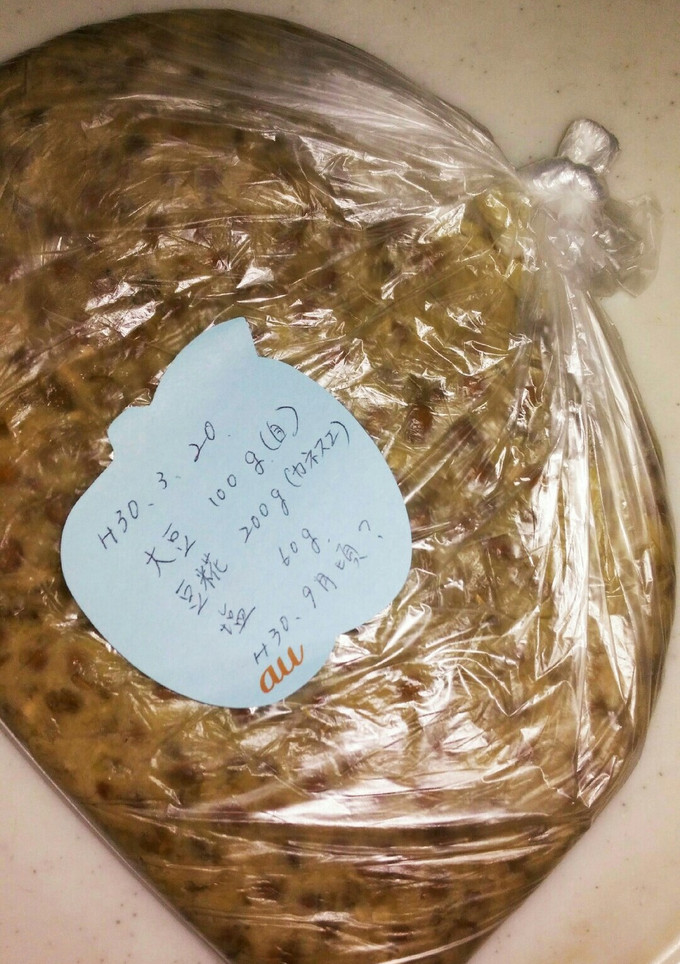 H30.3.20.
大豆 100g(自)
豆糀 200g(カネスエ)
塩 60g.
H30.9月頃?
au